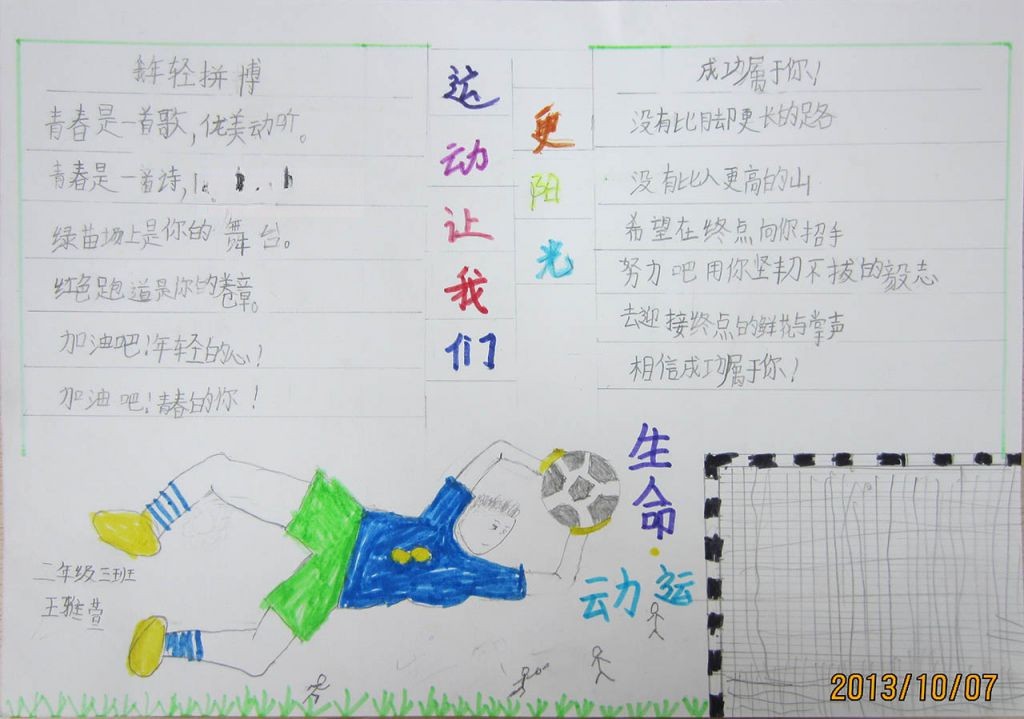 年轻拼博
青春是一首歌，优美动听。
青春是一首诗，
绿苗场上是你的舞台。
红色跑道是你的卷章。
加油吧！年轻的心！
加油吧！青春的你！
运动让我们
更阳光
成功属于你！
没有比脚更长的路
没有比人更高的山
希望在终点向你招手
努力吧用你坚韧不拔的毅志
去迎接终点的鲜花与掌声
相信成功属于你！
生命·
动运
二年级三班
王雅萱
2013/10/07